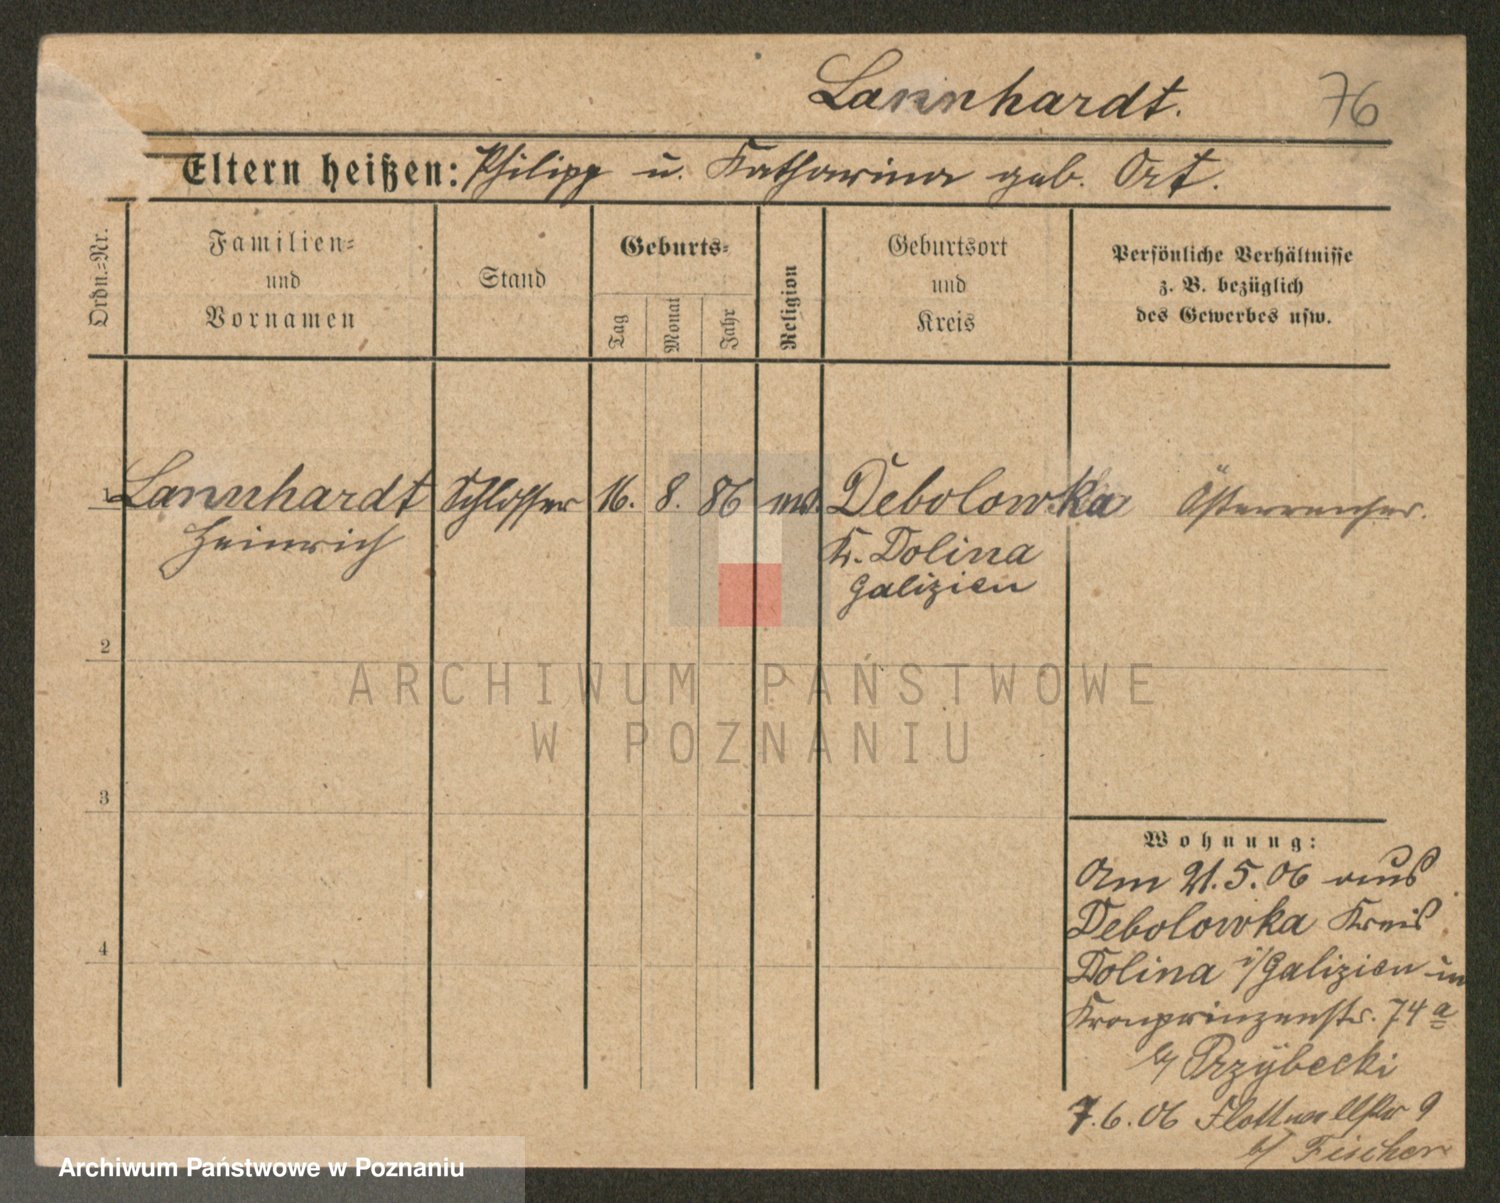 Lannhardt.
76
Eltern heißen: Philipp u. Katharina geb. Ort.
Ordn.=Nr.
Familien=
und
Vornamen
Stand
Geburts=
Tag
Monat
Jahr
Religion
Geburtsort
und
Kreis
Persönliche Verhältnisse
z. B. bezüglich
des Gewerbes usw.
1 Lannhardt Schlosser 16. 8. 86 Debolowka
Heinrich
Kr. Dolina
Galizien
2
3
4
ARCHIWUM PAŃSTWOWE
W POZNANIU
Wohnung:
Am 21.5.06 aus
Debolowka Kreis
Dolina i/Galizien in
Kronprinzenstr. 74 a
b/ Przybecki
7.6.06 Flottwellstr 9
b/ Fischer
Archiwum Państwowe w Poznaniu